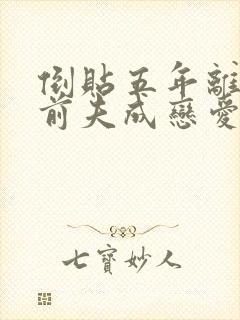 倒貼五年離
前夫成戀愛
七寶妙人